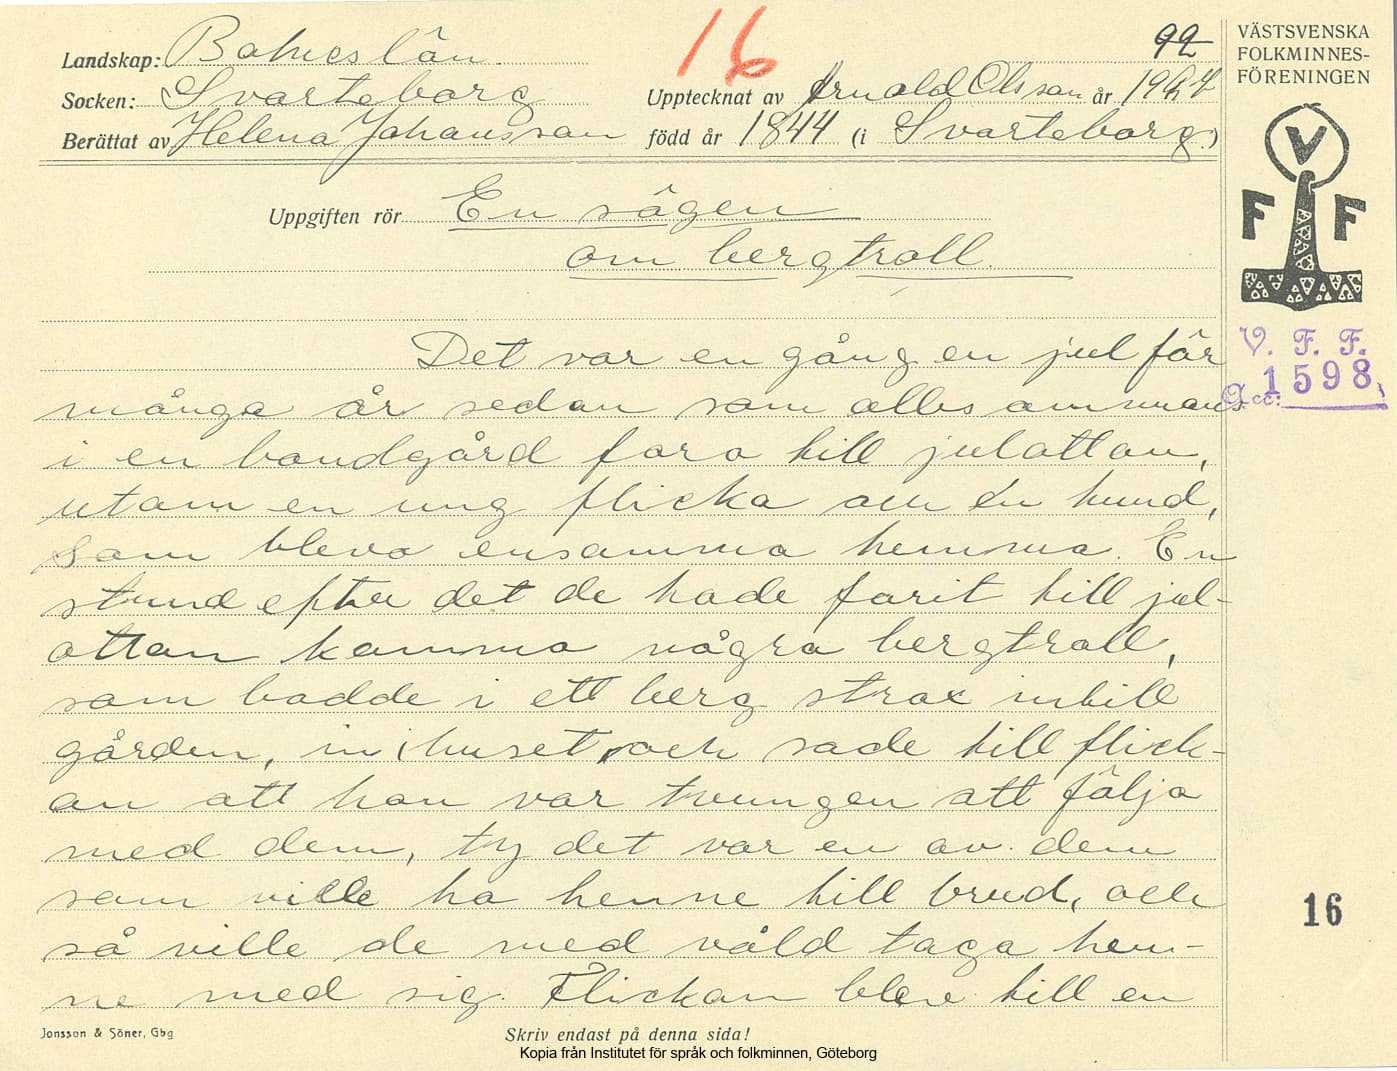 Landskap: Bohuslän
Socken: Svarteborg
Berättat av Helena Johansson
16
92
Upptecknat av Arnold Olsson år 1927
född år 1844 (i Svarteborg)
Uppgiften rör En sägen
om bergtroll.
Det var en gång en jul för
många år sedan som allesammans
i en bondgård fara till julottan,
utom en ung flicka och en hund,
som blevo ensamma hemma. En
stund efter det de hade farit till jul-
ottan kommo några bergtroll,
som bodde i ett berg strax intill
gården, in i huset, och sade till flick-
an att hon var tvungen att följa
med dem, ty det var en av dem
som ville ha henne till brud, och
så ville de med våld taga hen-
ne med sig. Flickan blev till en
Jonsson & Söner, Gbg
Skriv endast på denna sida!
Kopia från Institutet för språk och folkminnen, Göteborg
VÄSTSVENSKA
FOLKMINNES-
FÖRENINGEN
V
F F
V. F. F.
Acc: 1598
16